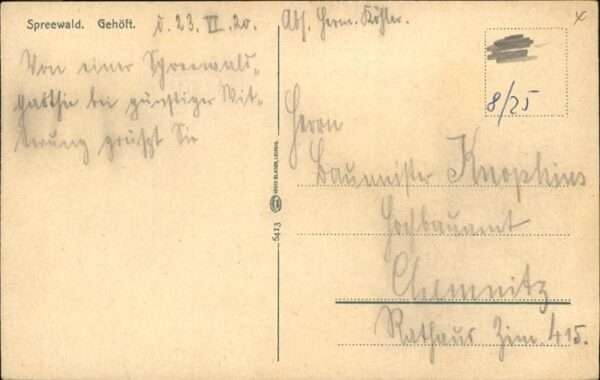 Spreewald. Gehöft.
d. 23. VI. 20.
Von einer Spreewald-
bei günstiger Wit-
terung grüßt Sie
Abs. Herm. Köhler.
8/25
Herrn
Baumeister
Hochbauamt
Chemnitz
Rathaus Zim. 415.
5413